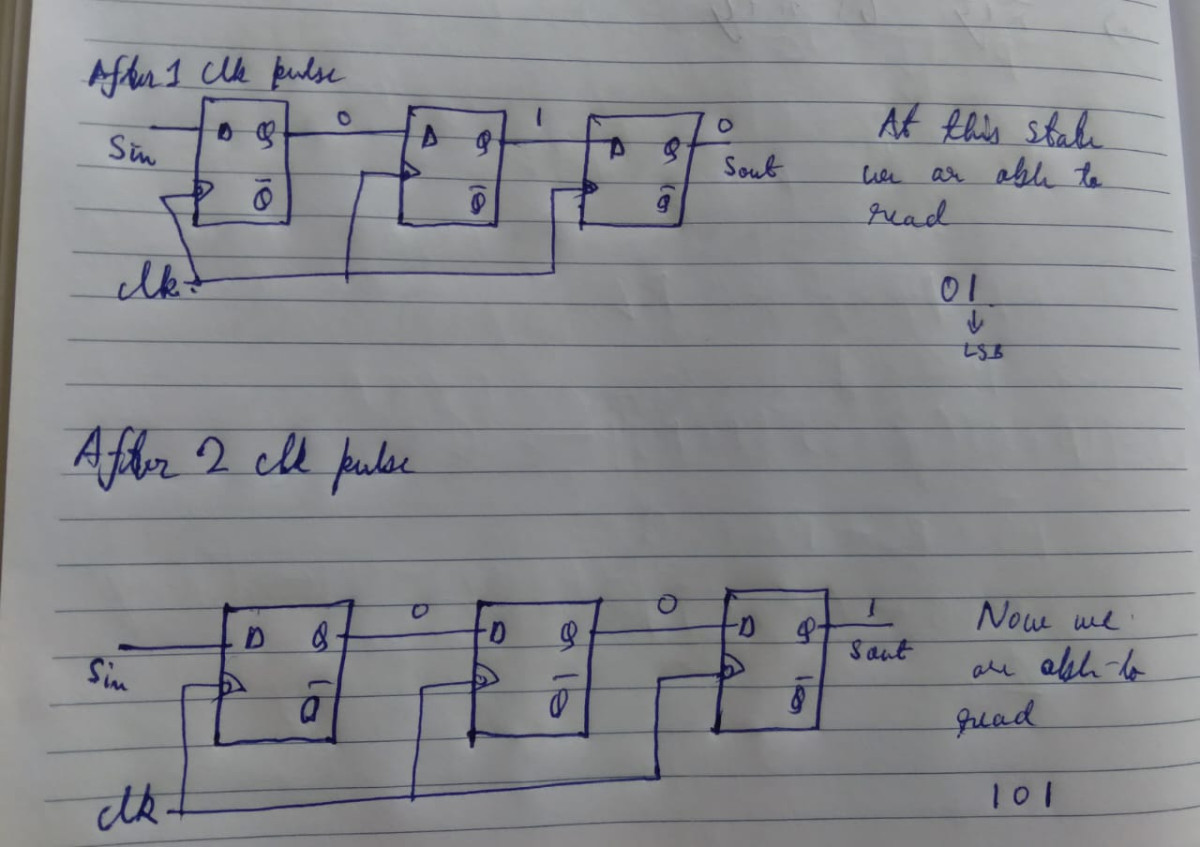 After 1 clk pulse
0 1 0
D Q D Q D Q
Sin Sout
Q̅ Q̅ Q̅
clk
At this state
we ar able to
read
01
↓
LSB
After 2 clk pulse
0 0 1
D Q D Q D Q
Sin Sout
Q̅ Q̅ Q̅
clk
Now we
are able to
read
101